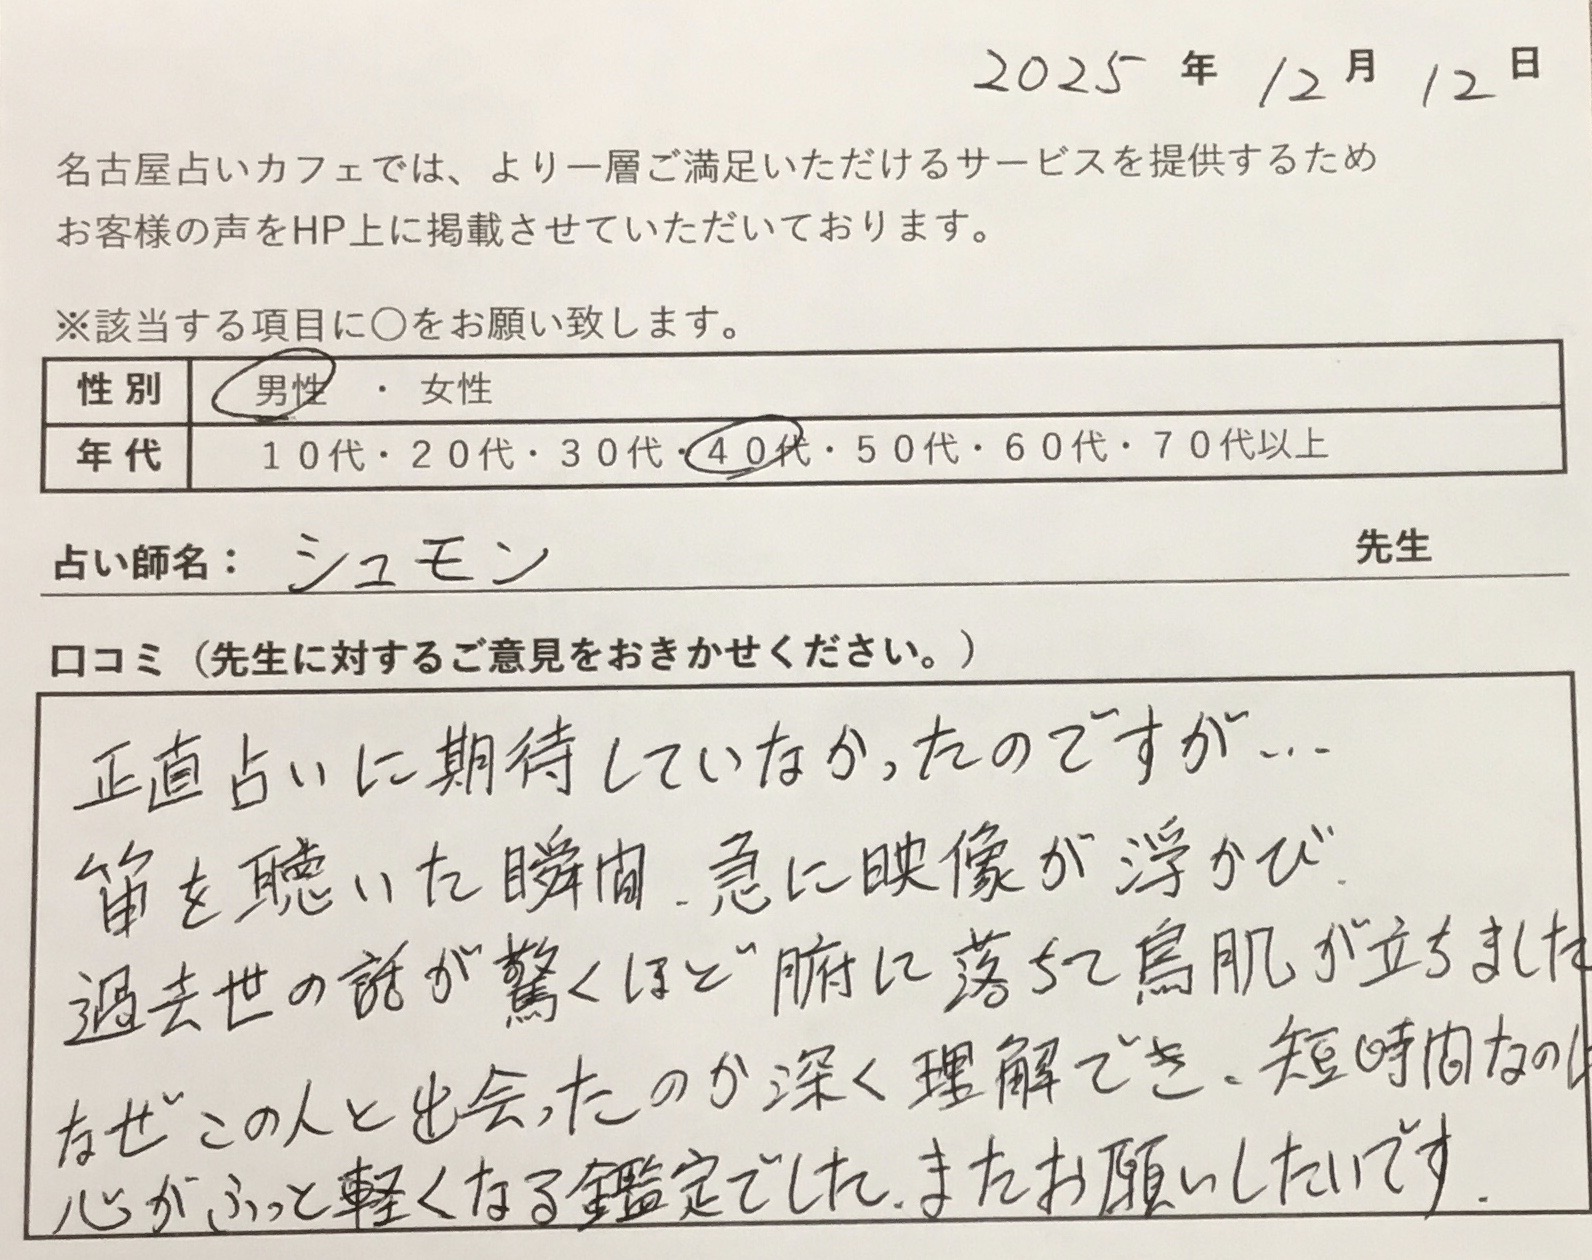 2025 年 12 月 12 日
名古屋占いカフェでは、より一層ご満足いただけるサービスを提供するため
お客様の声をHP上に掲載させていただいております。
※該当する項目に〇をお願い致します。
性別 男性 ・ 女性
年代 10代・20代・30代・40代・50代・60代・70代以上
占い師名： シュモン 先生
口コミ（先生に対するご意見をおきかせください。）
正直占いに期待していなかったのですが…
笛を聴いた瞬間、急に映像が浮かび、
過去世の話が驚くほど腑に落ちて鳥肌が立ちました
なぜこの人と出会ったのか深く理解でき、短時間なのに
心がふっと軽くなる鑑定でした、またお願いしたいです.